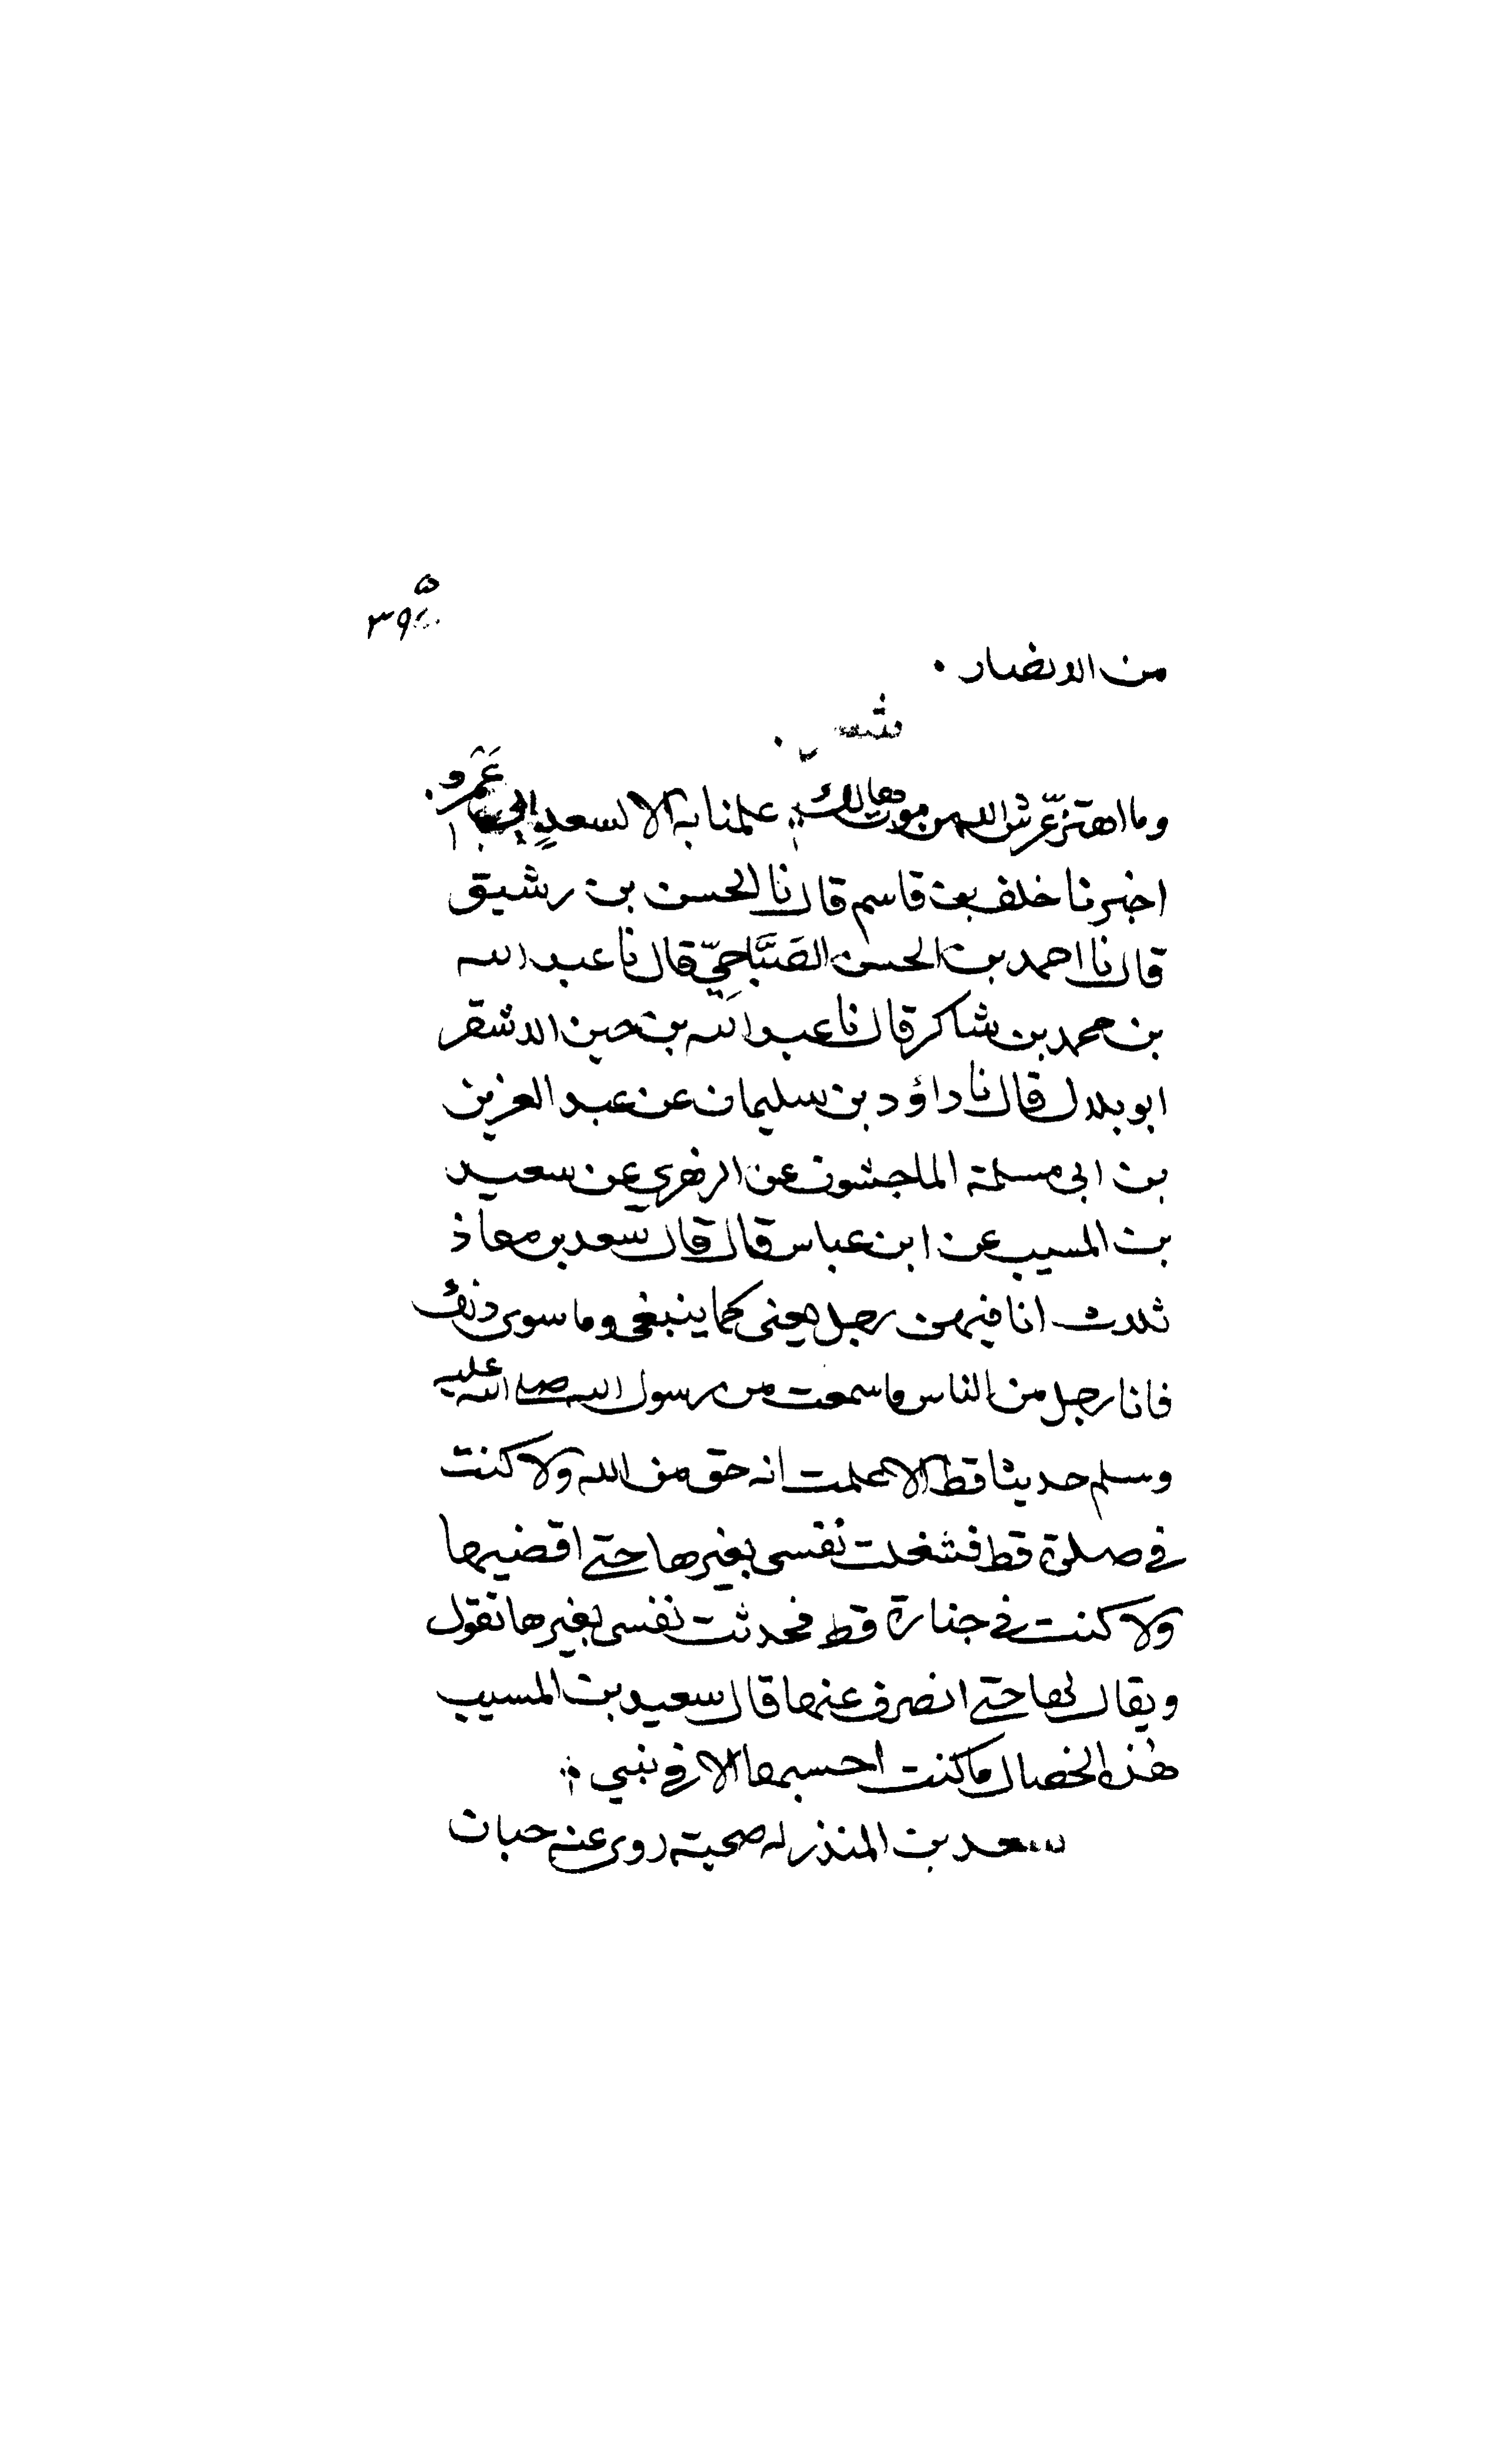 ٣٩٥
من الانصار .
شعر .
وما اهتز عرش الله من موت هالك علمنا به الا لسعد ابى عَمرو .
اخبرنا خلف بن قاسم قال نا الحسن بن رشيق
قال نا احمد بن الحسن الصَّبَّاحِيّ قال نا عبد الله
بن محمد بن شاكر قال نا عبد الله بن حبن الاشقر
ابو بلال قال نا داؤد بن سليمان عن عبد العزيز
بن ابى مسلمة الماجشون عن الزهري عن سعيد
بن المسيب عن ابن عباس قال قال سعد بن معاذ
ثلاث انا فيهن رجل يعنى كما ينبغى وما سوى ذلك
فانا رجل من الناس ما سمعت من رسول الله صلى الله عليه
وسلم حديثا قط الا علمت انه حق من الله ولا كنت
فى صلوة قط فشغلت نفسى بغيرها حتى اقضيها
ولا كنت فى جنازة قط فحدثت نفسى بغيرها تقول
ويقال لها حتى انصرف عنها قال سعيد بن المسيب
هٰذه الخصال ما كنت احسبها الا فى نبي
سعد بن المنذر له صحبة روى عنه حبان